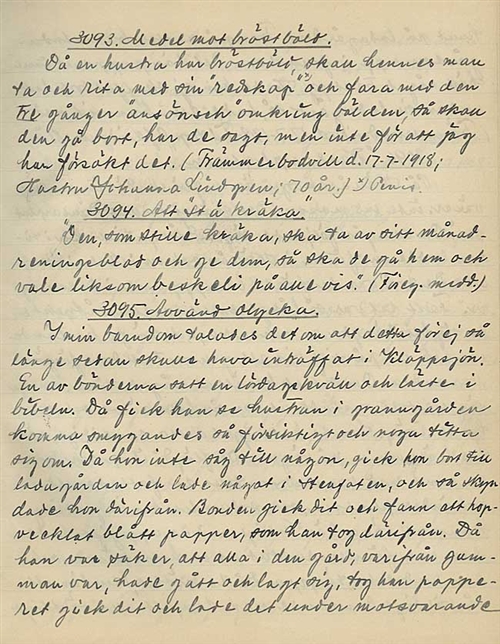 3093. Medel mot bröstböld.
Då en hustru har bröstböld, skall hennes man
ta och rita med sin "redskap"¹⁾ och fara med den
tre gånger "ansönsch" omkring bölden, så skall
den gå bort, har de sagt, men inte för att jag
har försökt det. (Främmerbodvill d. 17-7-1918;
Hustru Johanna Lindgren; 70 år.) ¹⁾ Penis.
3094. Att "stä kräka".
"Den, som stille kräka, ska ta av sitt månad-
reningsblod och ge dem, så ska de gå hem och
vale liksom beskeli på alle vis." (Föreg. medd.)
3095. Avvänd olycka.
I min barndom talades det om att detta för ej så
länge sedan skulle hava inträffat i Kläppsjön.
En av bönderna satt en lördagskväll och läste i
bibeln. Då fick han se hustrun i granngården
komma smygandes så försiktigt och noga titta
sig om. Då hon inte såg till någon, gick hon bort till
ladugården och lade något i stengaten, och så skyn
dade hon därifrån. Bonden gick dit och fann att hop-
vecklat blått papper, som han tog därifrån. Då
han var säker, att alla i den gård, varifrån gum-
man var, hade gått och lagt sig, tog han pappe-
ret gick dit och lade det under motsvarande